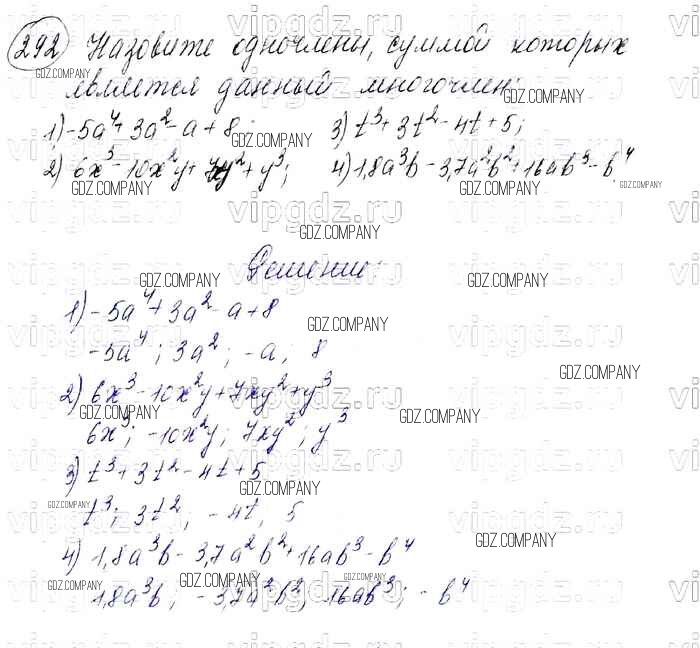 292 Назовите одночлены, суммой которых
является данный многочлен:
1) -5a⁴+3a²-a+8; 3) t³+3t²-4t+5;
2) 6x³-10x²y+7xy²+y³; 4) 1,8a³b-3,7a²b²+16ab³-b⁴
Решение:
1) -5a⁴+3a²-a+8
-5a⁴; 3a²; -a; 8
2) 6x³-10x²y+7xy²+y³
6x³; -10x²y; 7xy²; y³
3) t³+3t²-4t+5
t³; 3t²; -4t; 5
4) 1,8a³b-3,7a²b²+16ab³-b⁴
1,8a³b; -3,7a²b²; 16ab³; -b⁴
GDZ.COMPANY
vipgdz.ru